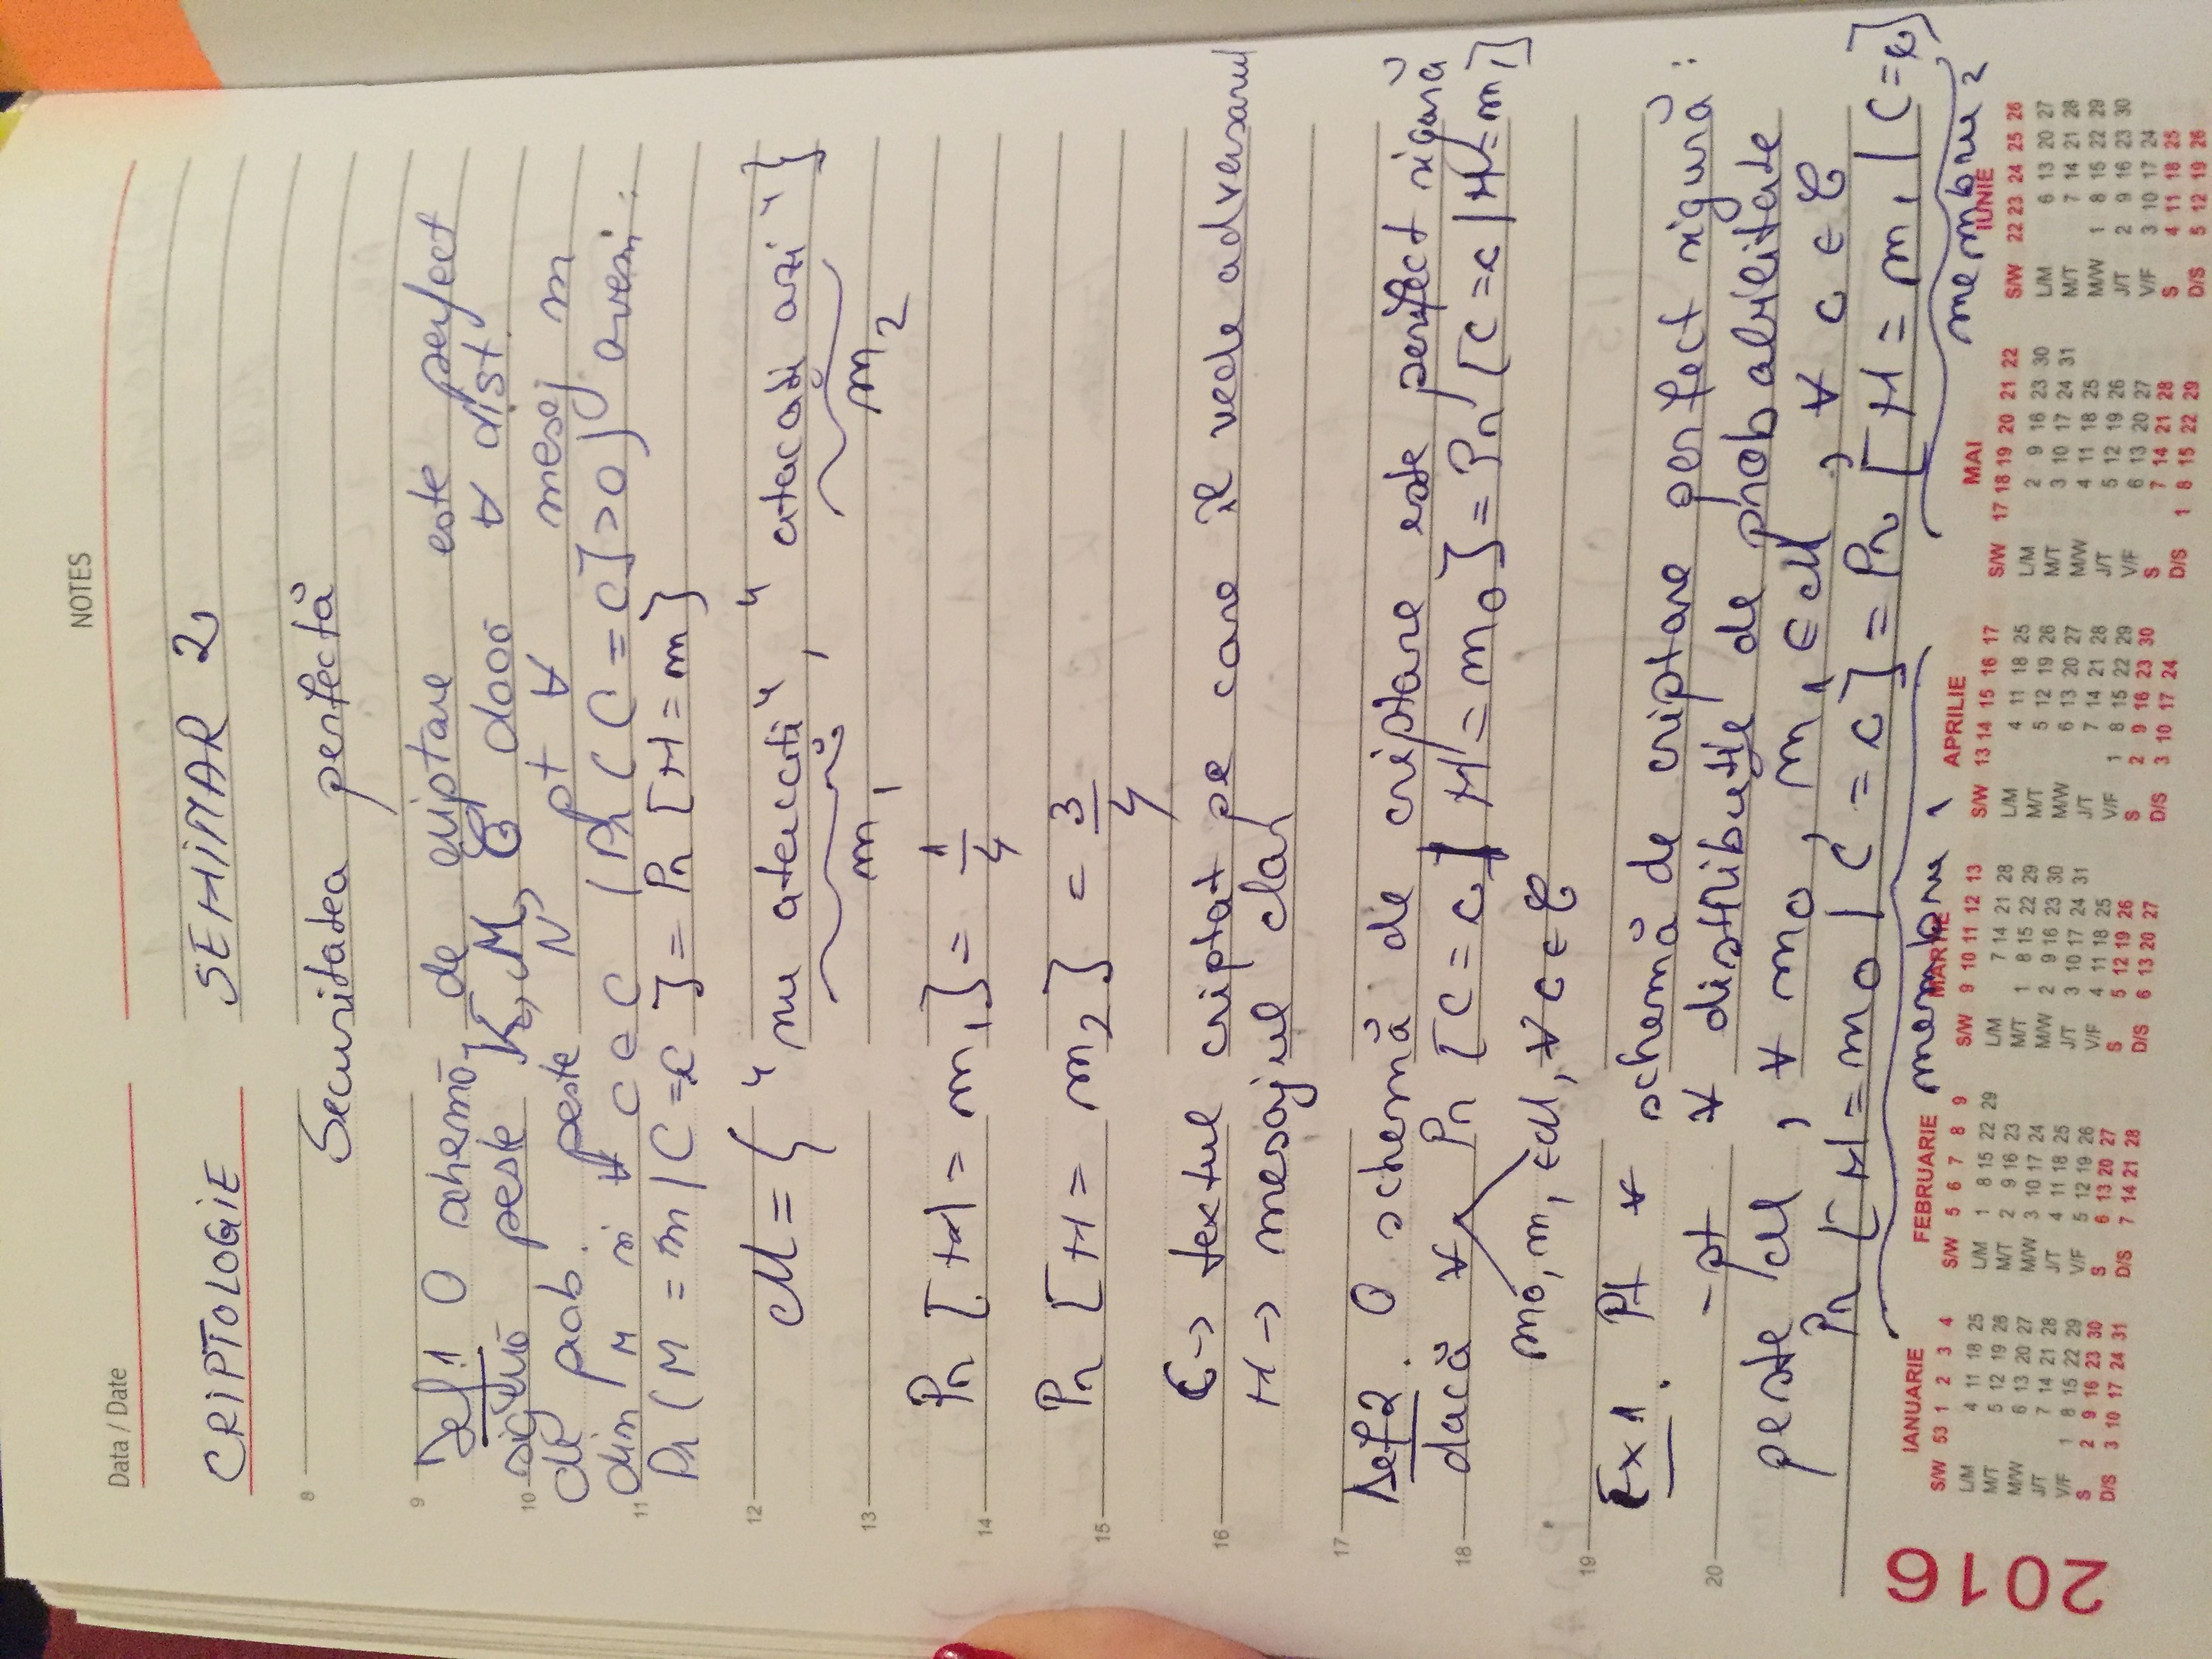 NOTES
Data / Date
CRIPTOLOGIE SEMINAR 2
8
Securitatea perfectă
9
Def.1 O schemă de criptare este perfect
10 sigură peste K, M, C dacă ∀ dist.
de prob. peste M pt ∀ mesaj m
11 din M si ∀ c ∈ C (Pr(C = c] > 0) avem:
Pr(M = m | C = c] = Pr [M = m]
12
M = { "nu atacati", "atacați azi" }
13 m1 m2
Pr [M = m1] = 1/4
14
Pr [M = m2] = 3/4
15
16 C → textul criptat pe care îl vede adversarul
M → mesajul clar
17
Def 2. O schemă de criptare este perfect sigură
18 dacă ∀ Pr [C = c | M = m0] = Pr [C = c | M = m1]
m0, m1 ∈ M, ∀ c ∈ C
19
Ex 1. Pt ∀ schemă de criptare perfect sigură:
20 - pt ∀ distribuție de probabilitate
peste M, ∀ m0, m1 ∈ M, ∀ c ∈ C
Pr [M = m0 | C = c] = Pr [M = m1 | C = c]
membru 1 membru 2
2016
IANUARIE
S/W 53 1 2 3 4
L/M 4 11 18 25
M/T 5 12 19 26
M/W 6 13 20 27
J/T 7 14 21 28
V/F 1 8 15 22 29
S 2 9 16 23 30
D/S 3 10 17 24 31
FEBRUARIE
S/W 5 6 7 8 9
L/M 1 8 15 22 29
M/T 2 9 16 23
M/W 3 10 17 24
J/T 4 11 18 25
V/F 5 12 19 26
S 6 13 20 27
D/S 7 14 21 28
MARTIE
S/W 9 10 11 12 13
L/M 7 14 21 28
M/T 1 8 15 22 29
M/W 2 9 16 23 30
J/T 3 10 17 24 31
V/F 4 11 18 25
S 5 12 19 26
D/S 6 13 20 27
APRILIE
S/W 13 14 15 16 17
L/M 4 11 18 25
M/T 5 12 19 26
M/W 6 13 20 27
J/T 7 14 21 28
V/F 1 8 15 22 29
S 2 9 16 23 30
D/S 3 10 17 24
MAI
S/W 17 18 19 20 21 22
L/M 2 9 16 23 30
M/T 3 10 17 24 31
M/W 4 11 18 25
J/T 5 12 19 26
V/F 6 13 20 27
S 7 14 21 28
D/S 1 8 15 22 29
IUNIE
S/W 22 23 24 25 26
L/M 6 13 20 27
M/T 7 14 21 28
M/W 1 8 15 22 29
J/T 2 9 16 23 30
V/F 3 10 17 24
S 4 11 18 25
D/S 5 12 19 26